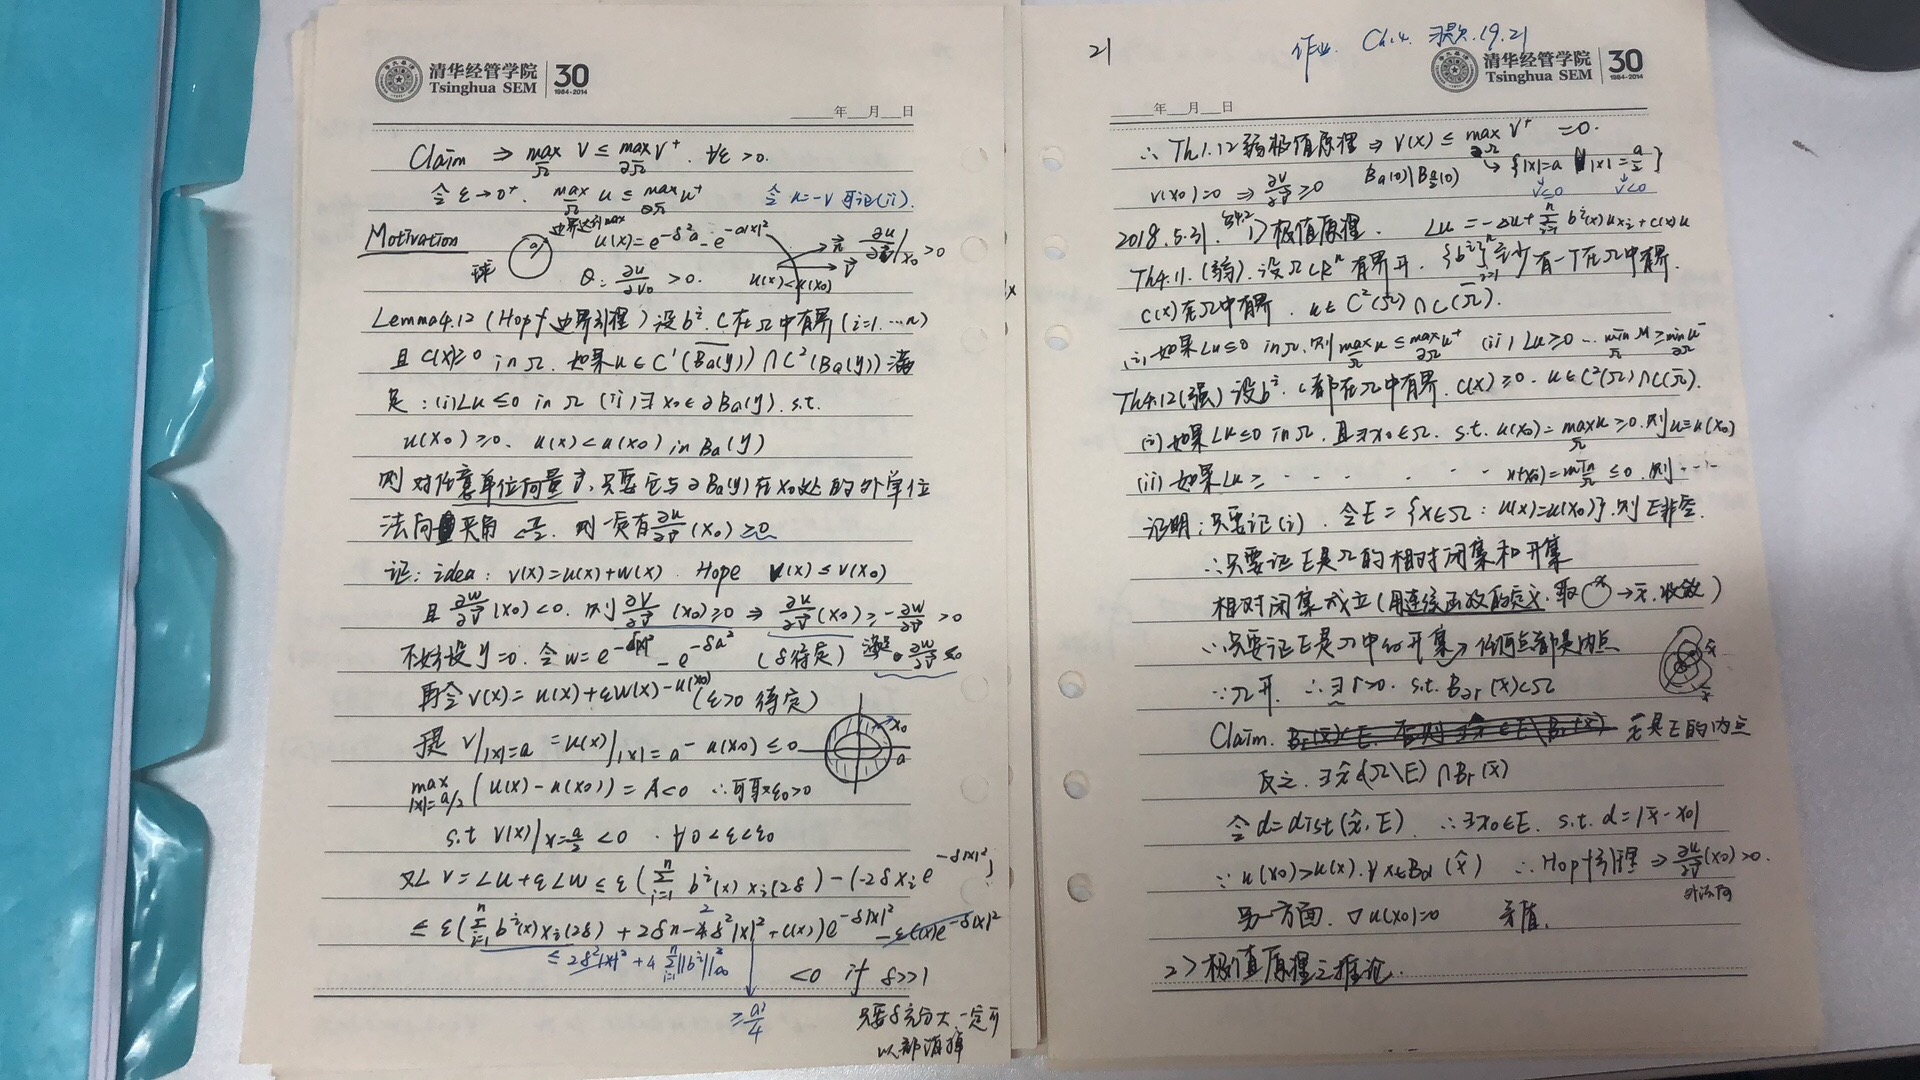 清华经管学院 30
Tsinghua SEM 1984-2014
年 月 日
Claim ⇒ max_Ω̄ V ≤ max_∂Ω V⁺. ∀ε > 0.
令 ε→0⁺. max_Ω̄ u ≤ max_∂Ω u⁺ 令 u=-v 可证(ii).
Motivation 边界达到max u(x)=e^{-δ²a}-e^{-a|x|²} ∂u/∂ν|x₀ > 0
球 Q: ∂u/∂ν₀ > 0. u(x)<u(x₀)
Lemma4.12 (Hopf 边界引理) 设 bⁱ. c 在 Ω 中有界 (i=1…n)
且 c(x)≥0 in Ω. 如果 u∈C¹(B̄a(y)) ∩ C²(Ba(y)) 满
足: (i) Lu ≤0 in Ω (ii) ∃ x₀∈∂Ba(y). s.t.
u(x₀) ≥0. u(x)<u(x₀) in Ba(y)
则 对任意单位向量 ν, 只要它与∂Ba(y)在x₀处的外单位
法向 夹角 <π/2. 则一定有 ∂u/∂ν (x₀) ≥0
证: idea: v(x)=u(x)+w(x). Hope v(x) ≤ v(x₀)
且 ∂w/∂ν(x₀) <0. 则 ∂v/∂ν (x₀) ≥0 ⇒ ∂u/∂ν(x₀) ≥ -∂w/∂ν >0
不妨设 y=0. 令 w=e^{-δ|x|²} - e^{-δa²} (δ待定) 满足 ∂w/∂ν <0
再令 v(x)= u(x)+εw(x)-u(x₀) (ε>0 待定)
v||x|=a = u(x)||x|=a - u(x₀) ≤ 0 x₀ a
max_{|x|=a/2} (u(x)-u(x₀)) = A<0 ∴可取ε₀>0
s.t v(x)|x=a/2 <0 . ∀ 0<ε<ε₀
又Lv=Lu+εLw ≤ ε(Σⁿᵢ₌₁ bⁱ(x) xᵢ(2δ) -(-2δxᵢe^{-δ|x|²})
≤ ε(Σⁿᵢ₌₁ bⁱ(x)xᵢ(2δ) + 2δn-4δ²|x|² + c(x))e^{-δ|x|²} - εc(x)e^{-δ|x|²}
≤ 2δ²|x|² + 4Σⁿᵢ₌₁||bⁱ||²∞ <0 if δ>>1
≥ a²/4 只要δ充分大一定可
以都消掉
21 作业. Ch.4. 习题.19.21
清华经管学院 30
Tsinghua SEM 1984-2014
年 月 日
∴ Th1.12 弱极值原理 ⇒ v(x) ≤ max_∂Ω v⁺ =0.
v(x₀)=0 ⇒ ∂v/∂ν ≥0 Ba(0)\Ba/2(0) {|x|=a |x|=a/2}
v≤0 v<0
2018.5.31. §4.2 1>极值原理. Lu = -Δu+Σⁿᵢ₌₁ bⁱ(x)uxᵢ+c(x)u
Th4.11.(弱). 设 Ω⊂Rⁿ 有界开. {bⁱ}ⁿᵢ₌₁ 至少有一个在Ω中有界.
c(x)在Ω中有界. u∈C²(Ω)∩C(Ω̄).
(i) 如果 Lu≤0 in Ω. 则 max_Ω̄ u ≤ max_∂Ω u⁺ (ii) Lu≥0 … min_Ω̄ u ≥ min_∂Ω u⁻
Th4.12(强) 设 bⁱ. c 都在Ω中有界. c(x)≥0. u∈C²(Ω)∩C(Ω̄).
(i) 如果 Lu≤0 in Ω. 且∃x₀∈Ω. s.t. u(x₀)= max_Ω̄ u ≥0. 则 u≡u(x₀)
(ii) 如果 Lu≥ - - - - - u(x₀)=min_Ω̄ ≤0. 则 ---
证明: 只要证(i). 令 E={x∈Ω: u(x)=u(x₀)}. 则 E非空.
∴只要证 E是Ω的相对闭集和开集
相对闭集成立 (用连续函数的定义. 取 →x̄. 收敛)
∴只要证E是Ω中的开集, 任何点都是内点
∵Ω开. ∴∃ r>0. s.t. B₂r(x̄)⊂Ω
Claim. x̄是E的内点
反之. ∃ x̂∈(Ω\E)∩Br(x̄)
令 d=dist(x̂,E). ∴∃x₀∈E. s.t. d=|x̂-x₀|
∵ u(x₀)>u(x). ∀x∈Bd(x̂) ∴Hopf引理 ⇒ ∂u/∂ν(x₀)>0.
外法向
另一方面. ∇u(x₀)=0 矛盾.
2>极值原理之推论.